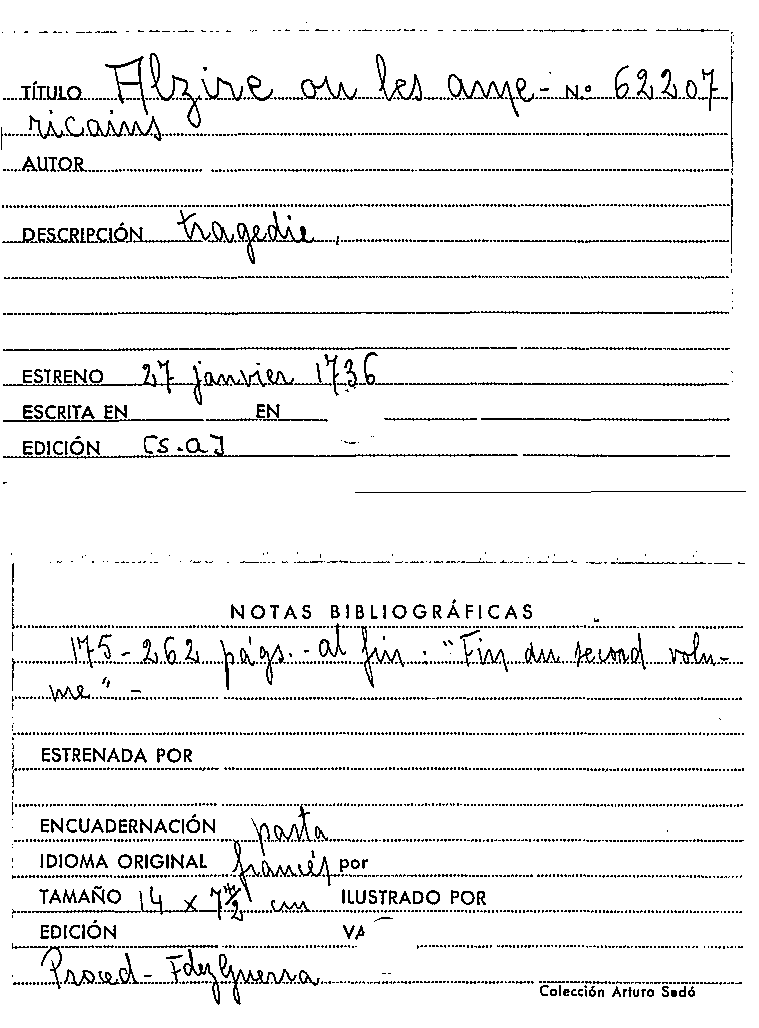 TÍTULO Alzire ou les ame- N.º 62207
ricains
AUTOR
DESCRIPCIÓN tragedie,
ESTRENO 27 janvier 1736
ESCRITA EN EN
EDICIÓN [s.a]
NOTAS BIBLIOGRÁFICAS
175-262 págs. - al fin : "Fin du second volu-
me" -
ESTRENADA POR
ENCUADERNACIÓN pasta
IDIOMA ORIGINAL francés por
TAMAÑO 14 x cm ILUSTRADO POR
EDICIÓN
Proced - FdezGuerra
Colección Arturo Sedó